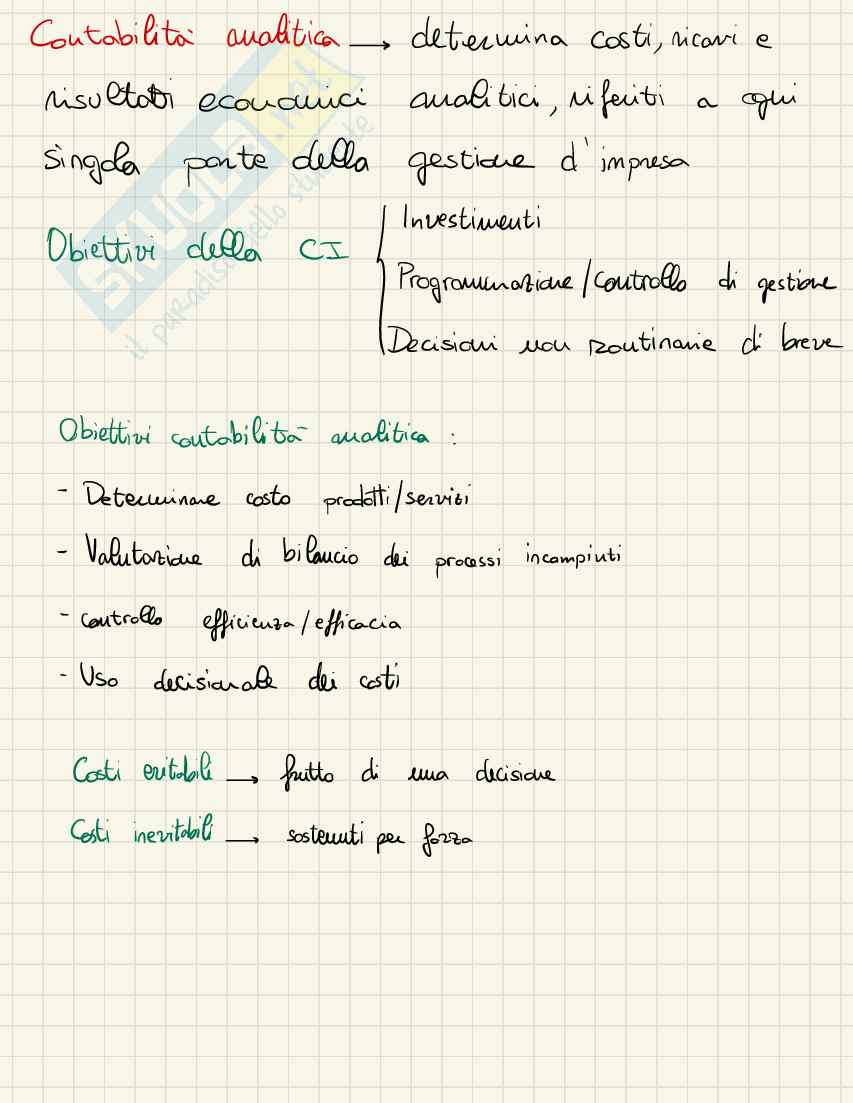 Contabilità analitica → determina costi, ricavi e
risultati economici analitici, riferiti a ogni
singola parte della gestione d'impresa
Obiettivi della CI
Investimenti
Programmazione/controllo di gestione
Decisioni non routinarie di breve
Obiettivi contabilità analitica :
- Determinare costo prodotti/servizi
- Valutazione di bilancio dei processi incompiuti
- controllo efficienza/efficacia
- Uso decisionale dei costi
Costi evitabili → frutto di una decisione
Costi inevitabili → sostenuti per forza
SKUOLA.net
il paradiso dello studente